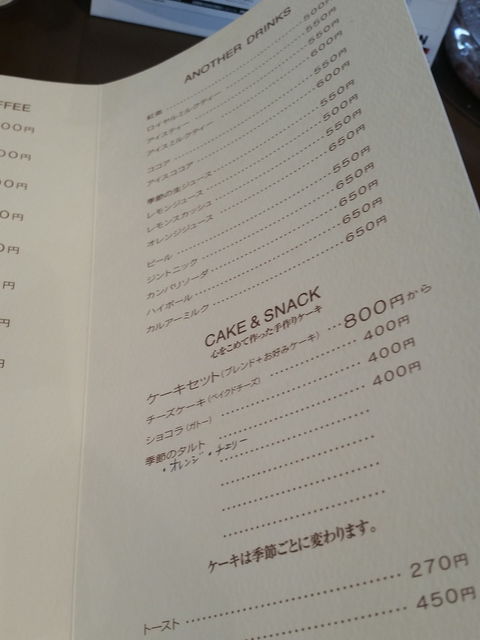 FFEE
00円
00円
0円
0円
0円
円
円
円
ANOTHER DRINKS
紅茶 500円
ロイヤルミルクティー 550円
アイスティー 550円
アイスミルクティー 600円
ココア 550円
アイスココア 600円
季節の生ジュース 550円
レモンジュース 500円
レモンスカッシュ 550円
オレンジジュース 650円
ビール 550円
ジントニック 650円
カンパリソーダ 650円
ハイボール 650円
カルアーミルク 650円
CAKE & SNACK
心をこめて作った手作りケーキ
ケーキセット(ブレンド+お好みケーキ) 800円から
チーズケーキ(ベイクドチーズ) 400円
ショコラ(ガトー) 400円
季節のタルト 400円
・オレンジ ・チェリー
ケーキは季節ごとに変わります。
トースト 270円
450円